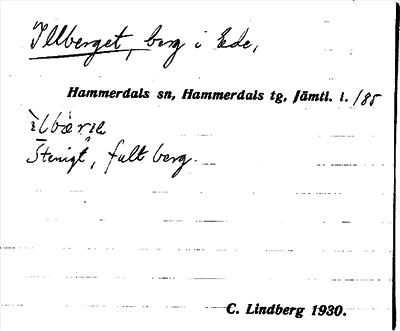 Illberget, berg i Ede,
Hammerdals sn, Hammerdals tg, Jämtl. l. 185
Stenigt, fult berg.
C. Lindberg 1930.